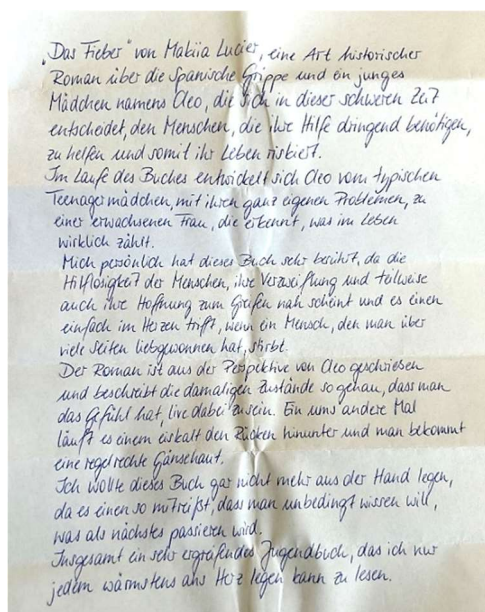 „Das Fieber" von Makiia Lucier, eine Art historischer
Roman über die Spanische Grippe und ein junges
Mädchen namens Cleo, die sich in dieser schweren Zeit
entscheidet, den Menschen, die ihre Hilfe dringend benötigen,
zu helfen und somit ihr Leben riskiert.
Im Laufe des Buches entwickelt sich Cleo vom typischen
Teenagermädchen, mit ihren ganz eigenen Problemen, zu
einer erwachsenen Frau, die erkennt, was im Leben
wirklich zählt.
Mich persönlich hat dieses Buch sehr berührt, da die
Hilflosigkeit der Menschen, ihre Verzweiflung und teilweise
auch ihre Hoffnung zum Greifen nah scheint und es einen
einfach im Herzen trifft, wenn ein Mensch, den man über
viele Seiten liebgewonnen hat, stirbt.
Der Roman ist aus der Perspektive von Cleo geschrieben
und beschreibt die damaligen Zustände so genau, dass man
das Gefühl hat, live dabei zu sein. Ein ums andere Mal
läuft es einem eiskalt den Rücken hinunter und man bekommt
eine regelrechte Gänsehaut.
Ich wollte dieses Buch gar nicht mehr aus der Hand legen,
da es einen so mitreißt, dass man unbedingt wissen will,
was als nächstes passieren wird.
Insgesamt ein sehr ergreifendes Jugendbuch, das ich nur
jedem wärmstens ans Herz legen kann zu lesen.